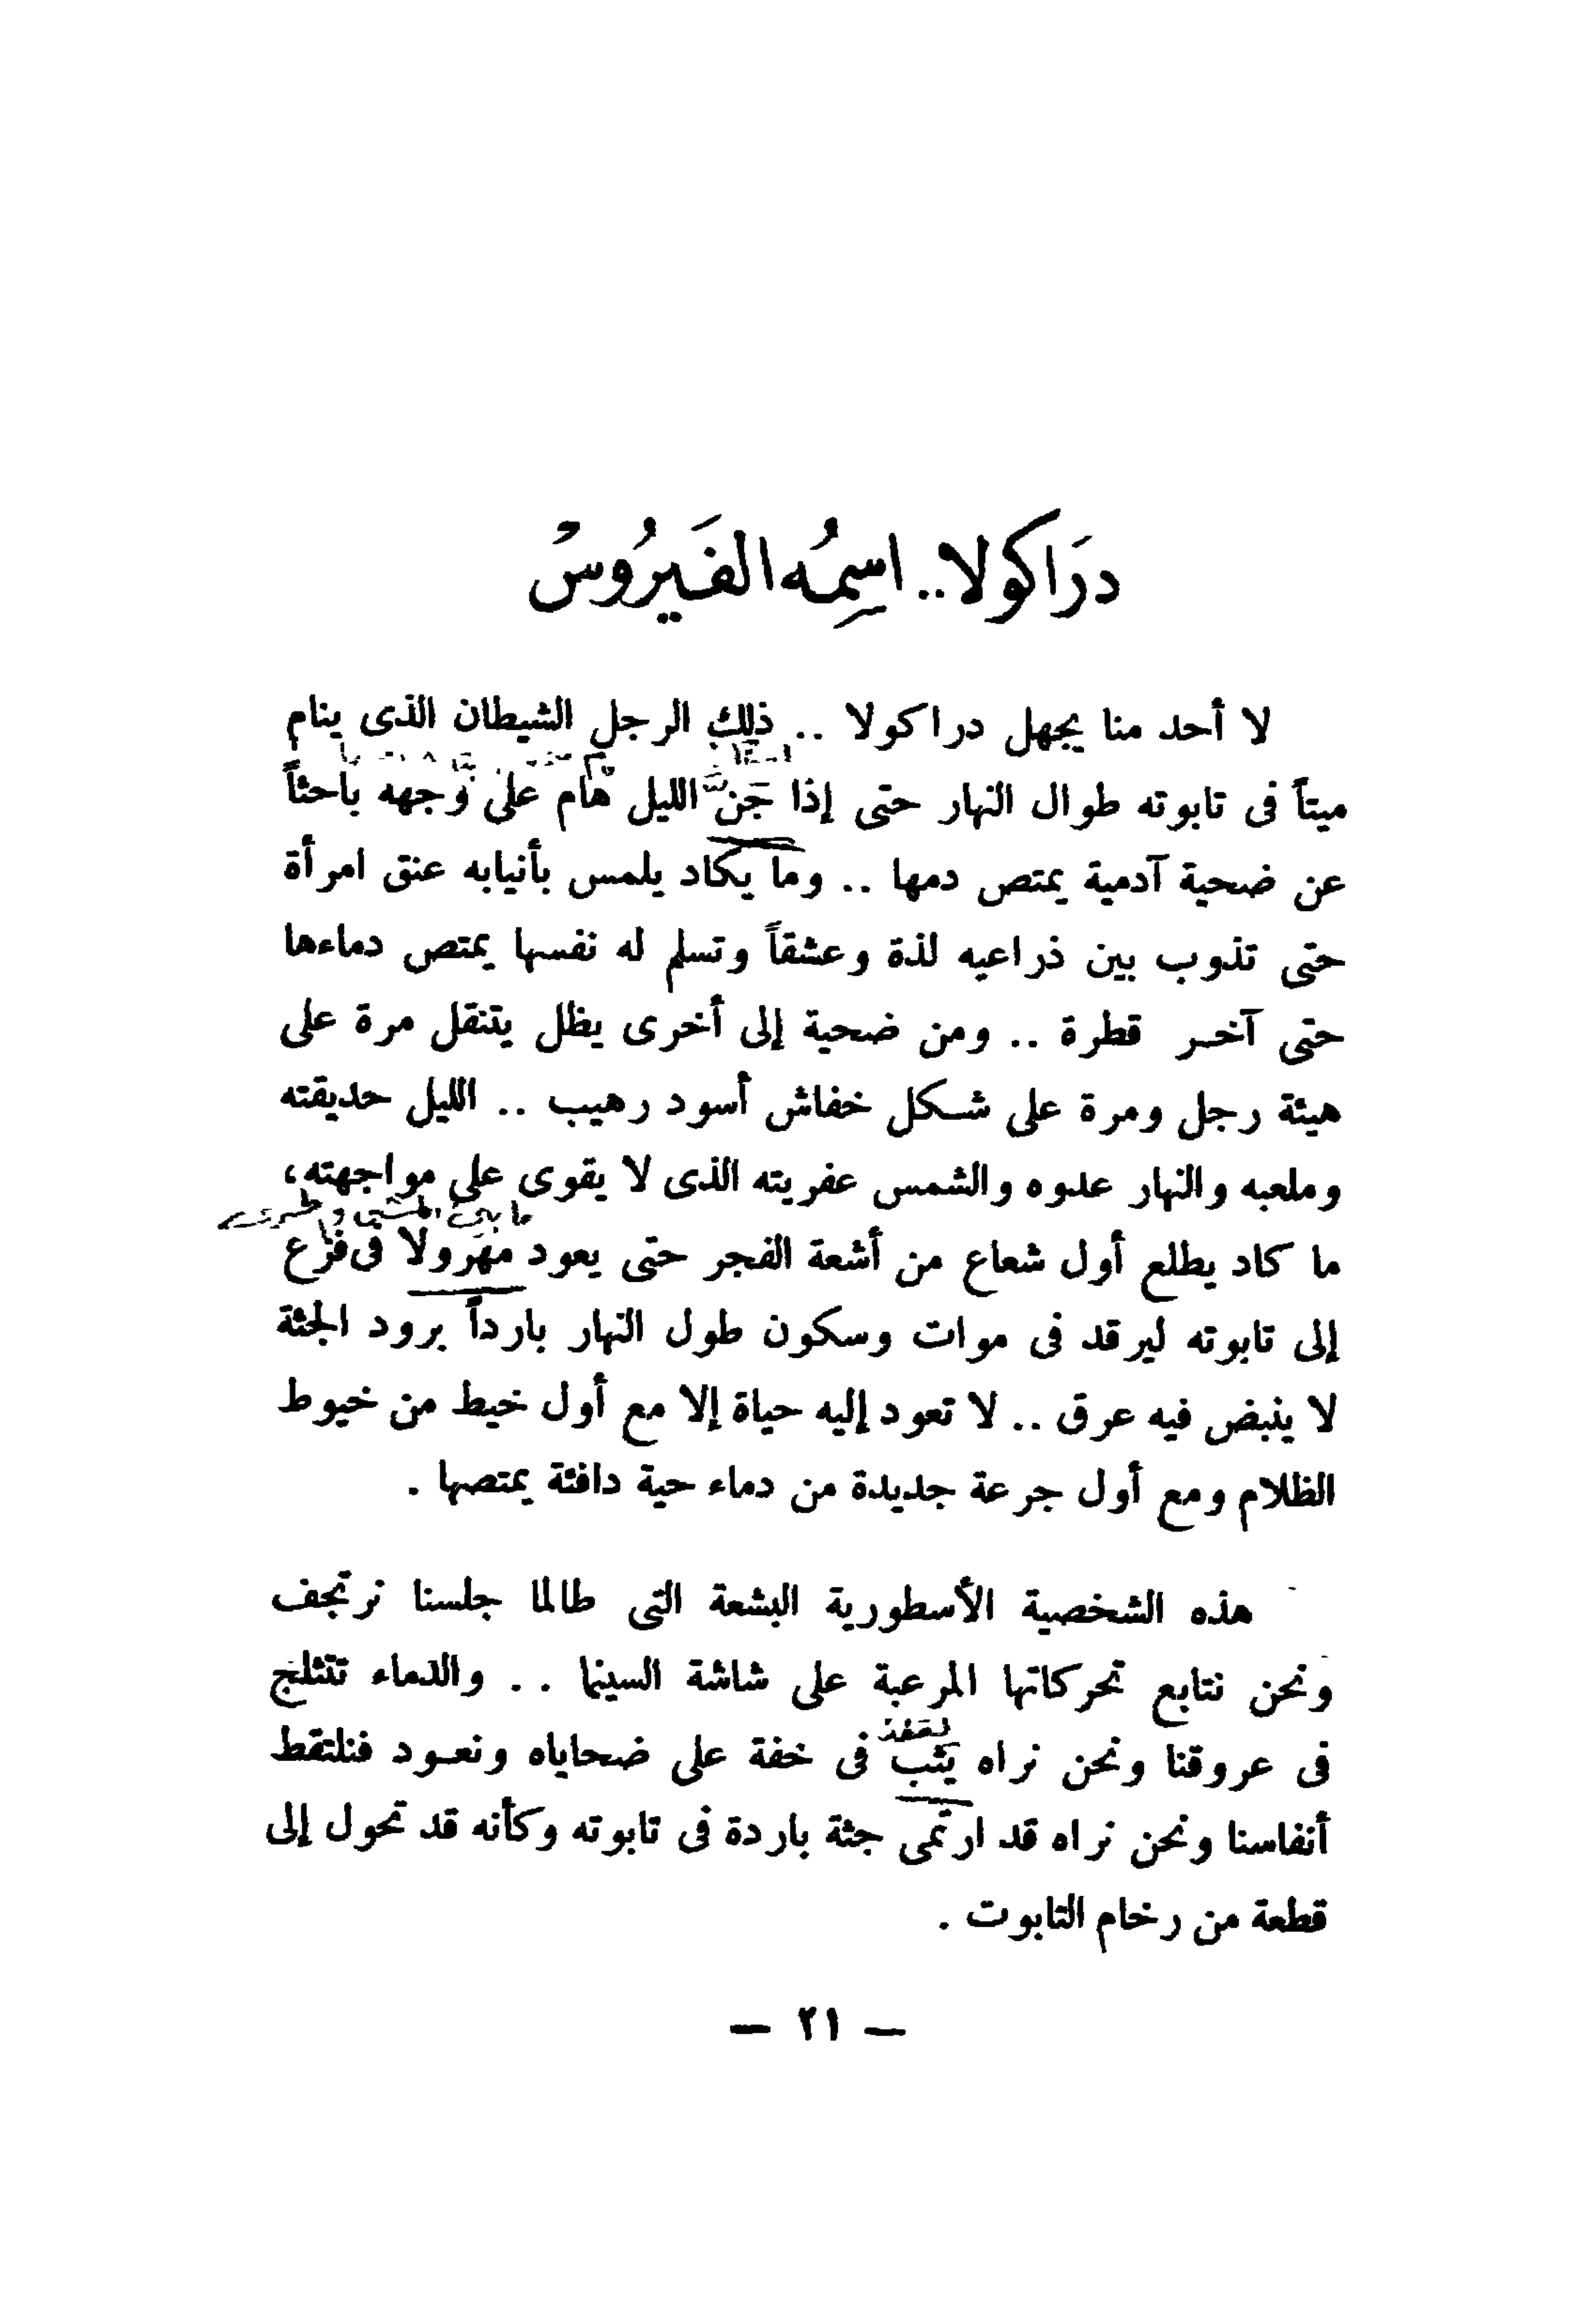 دَراكولا.. اسمُه الفَيرُوسْ
لا أحد منا يجهل دراكولا .. ذلك الرجل الشيطان الذى ينام
ميتاً فى تابوته طوال النهار حتى إذا جَنَّ الليل هام على وجهه باحثاً
عن ضحية آدمية يمتص دمها .. وما يكاد يلمس بأنيابه عنق امرأة
حتى تذوب بين ذراعيه لذة وعشقاً وتسلم له نفسها يمتص دماءها
حتى آخر قطرة .. ومن ضحية إلى أخرى يظل يتنقل مرة على
هيئة رجل ومرة على شكل خفاش أسود رهيب .. الليل حديقته
وملعبه والنهار عدوه والشمس عفريته الذى لا يقوى على مواجهته،
ما بين المشى و
ما كاد يطلع أول شعاع من أشعة الفجر حتى يعود مهرولا فى فزع
إلى تابوته ليرقد فى موات وسكون طول النهار بارداً برود الجثة
لا ينبض فيه عرق .. لا تعود إليه حياة إلا مع أول خيط من خيوط
الظلام ومع أول جرعة جديدة من دماء حية دافئة يمتصها .
هذه الشخصية الأسطورية البشعة التى طالما جلسنا نرتجف
ونحن نتابع تحركاتها المرعبة على شاشة السينما .. والدماء تتثلج
فى عروقنا ونحن نراه يثب فى خفة على ضحاياه ونعود فنلتقط
أنفاسنا ونحن نراه قد ارتمى جثة باردة فى تابوته وكأنه قد تحول إلى
قطعة من رخام التابوت .
— ٢١ —